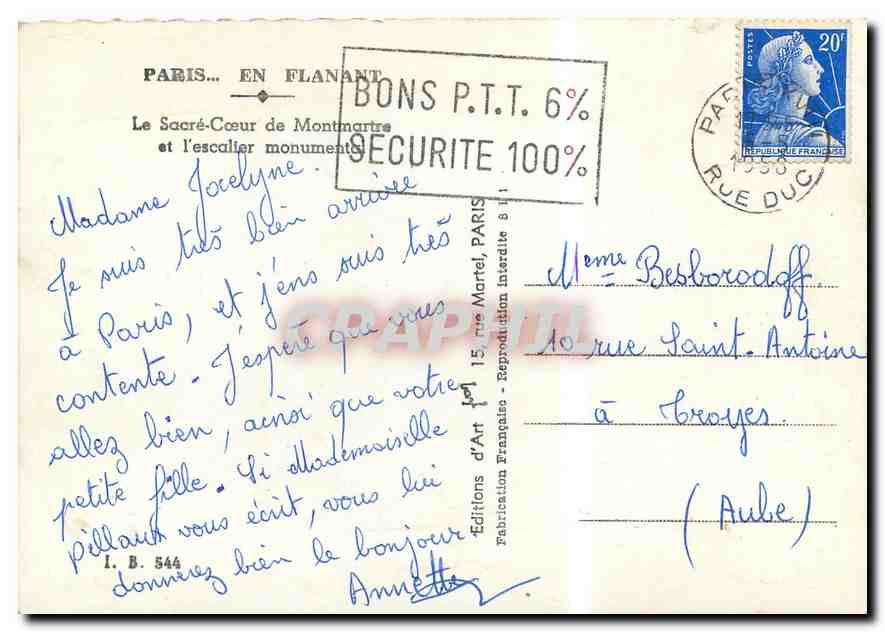 PARIS... EN FLANANT
Le Sacré-Cœur de Montmartre
et l'escalier monumental
BONS P.T.T. 6%
SECURITE 100%
POSTES
20F
REPUBLIQUE FRANÇAISE
PARIS
1958
RUE DUC
Madame Jocelyne.
Je suis très bien arrivée
à Paris, et j'ens suis très
contente. J'espère que vous
allez bien, ainsi que votre
petite fille. Si Mademoiselle
Pillaut vous écrit, vous lui
donnerez bien le bonjour.
Annette
I. B. 544
Editions d'Art 15, rue Martel, PARIS
Fabrication Française - Reproduction Interdite
CPAPHIL
Meme Besborodoff.
10 rue Saint-Antoine
à Troyes.
(Aube)